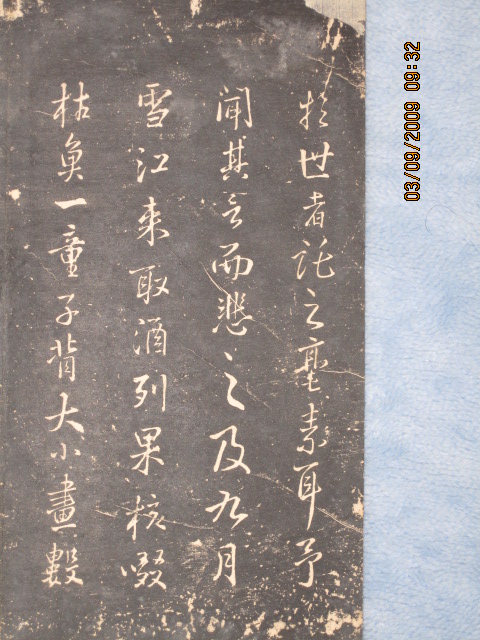 於世者託之毫素耳予
聞其言而悲之及九月
雪江来取酒列果核啜
枯魚一童子背大小畫數
03/09/2009 09:32